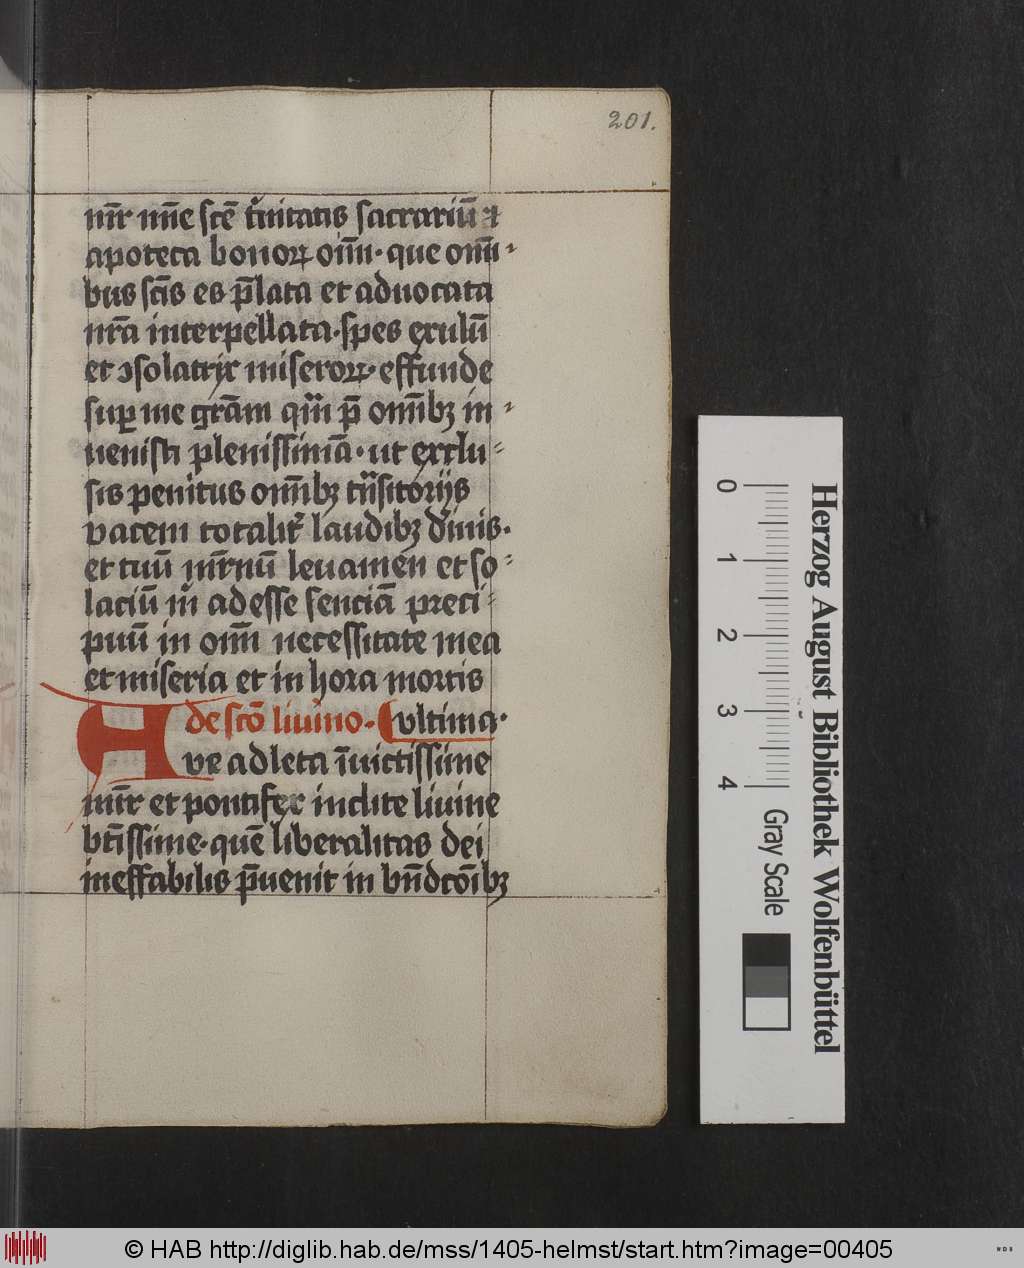 201.
mr̄ nr̄e scē tʼnitatis sacrariū ⁊
apoteca bonoꝝ om̄īū · que om̄i-
bus scīs es p̄lata et aduocata
nrā interpellata · spes exulū
et ↄsolatrix miseroꝝ · effunde
suꝑ me grām quā p̄ om̄ibꝫ in-
uenisti plenissimā · ut exclu-
sis penitus om̄ibꝫ trāsitorijs
vacem totalitʼ laudibꝫ dʼinis ·
et tuū mr̄nū leuamen et so-
laciū mʼ adesse senciā preci-
puū in om̄i necessitate mea
et miseria et in hora mortis
de scō liuino · ultima ·
Aue adleta īuictissime
mr̄ et pontifex inclite liuine
btīssime · quē liberalitas dei
ineffabilis p̄uenit in bn̄dcōībꝫ
0 1 2 3 4
Gray Scale
Herzog August Bibliothek Wolfenbüttel
© HAB http://diglib.hab.de/mss/1405-helmst/start.htm?image=00405